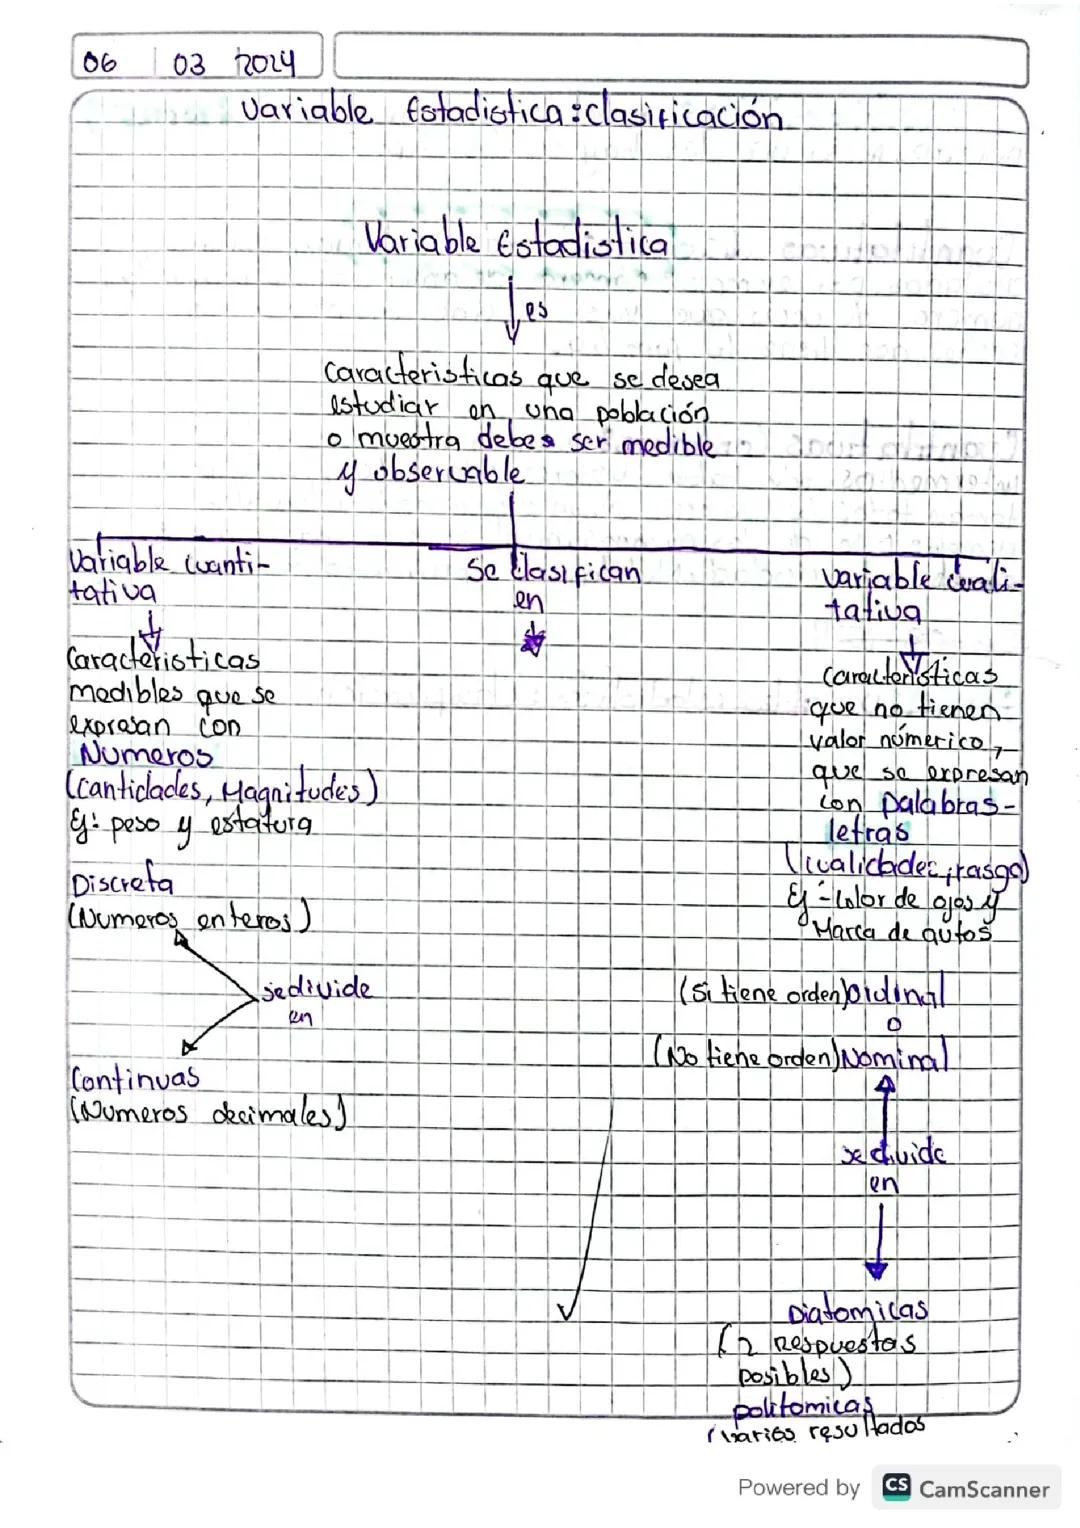 06 03 2024
Variable Estadistica: clasificación
Variable Estadistica
es
Caracteristicas que se desea
estudiar en una población
o muestra debes ser medible
y observable
Variable cuanti-
tativa
Caracteristicas
medibles que se
expresan con
Numeros
(Cantidades, Magnitudes)
Ej: peso y estatura
Discreta
(Numeros enteros)
se divide
en
Continuas
(Numeros decimales)
Se clasifican
en
Variable cuali-
tativa
Caracteristicas
que no tienen
valor númerico,
que se expresan
con palabras-
letras
(cualidades, rasgo)
Ej - Color de ojos y
Marca de autos
(Si tiene orden) Ordinal
o
(No tiene orden) Nominal
se divide
en
Diatomicas
(2 Respuestas
posibles)
politomicas
(varios resultados
Powered by CS CamScanner